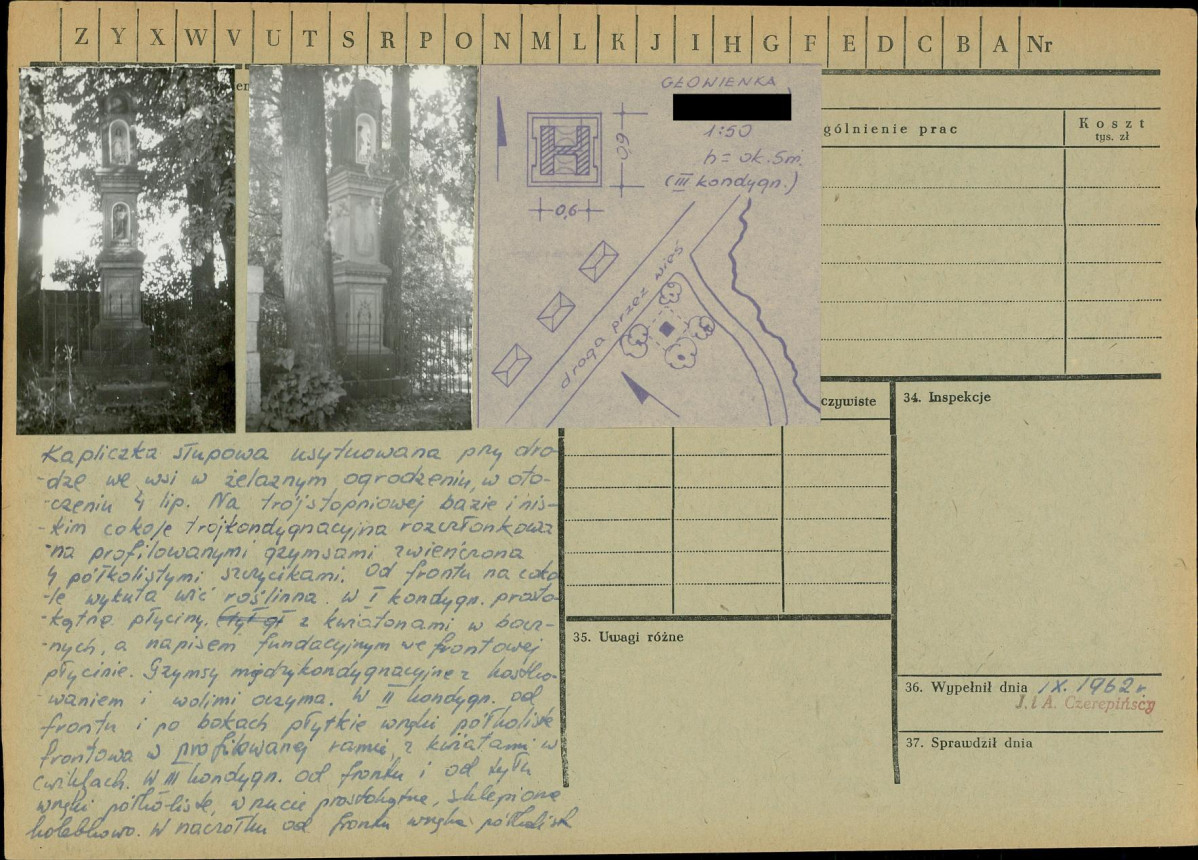 Z Y X W V U T S R P O N M L K J I H G F E D C B A Nr
en
GŁOWIENKA
1:50
h = ok. 5m.
(III kondygn.)
0,9
0,6
droga przez wieś
gólnienie prac
Koszt
tys. zł
czywiste
34. Inspekcje
35. Uwagi różne
36. Wypełnił dnia IX. 1962 r.
J. i A. Czerepińscy
37. Sprawdził dnia
Kapliczka słupowa usytuowana przy dro-
-dze we wsi w żelaznym ogrodzeniu, w oto-
-czeniu 4 lip. Na trójstopniowej bazie i nis-
-kim cokole trójkondygnacyjna rozczłonkowa
-na profilowanymi gzymsami zwieńczona
4 półkolistymi szczycikami. Od frontu na coko
-le wykuta wić roślinna. W I kondygn. prosto
-kątne płyciny. z kwiatonami w bocz-
-nych, a napisem fundacyjnym we frontowej
płycinie. Gzymsy międzykondygnacyjne z kostko-
-waniem i wolimi oczyma. W II kondygn. od
frontu i po bokach płytkie wnęki półkoliste
frontowa w profilowanej ramie, z kwiatami w
cwiklach. W III kondygn. od frontu i od tyłu
wnęki półkoliste, w rzucie prostokątne, sklepione
kolebkowo. W naczółku od frontu wnęka półkolist